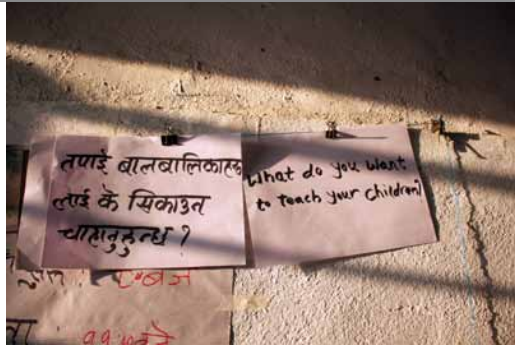 तपाई बालबालिकाहरू
लाई के सिकाउन
चाहानुहुन्छ ?
What do you want
to teach your children?